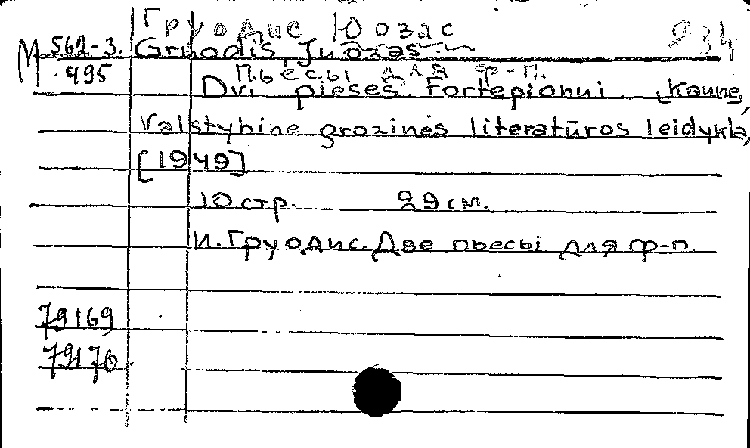 Груодис Юозас 934
М 562-3. Gruodis, Juozas
495
Пьесы для ф-п.
Dvi pieses fortepionui. Kaune,
Valstybine grozinės literatūros leidykla,
[1949]
10 стр. 29 см.
И. Груодис. Две пьесы для ф-п.
79169
79170